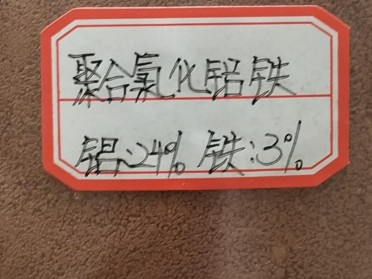 聚合氯化铝铁
铝:24% 铁:3%